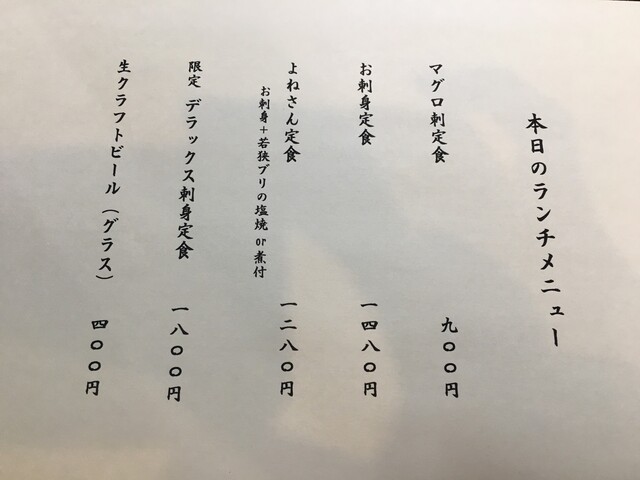 本日のランチメニュー
マグロ刺定食 九〇〇円
お刺身定食 一四八〇円
よねさん定食 一二八〇円
お刺身+若狭ブリの塩焼 or 煮付
限定 デラックス刺身定食 一八〇〇円
生クラフトビール(グラス) 四〇〇円